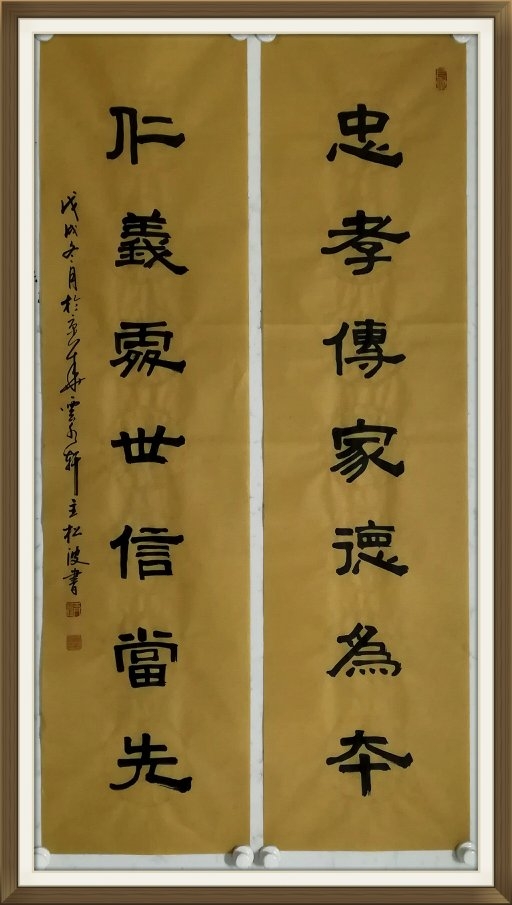 忠孝傳家德為夲
仁義處世信當先
戊戌冬月於京華雲水軒主松波書